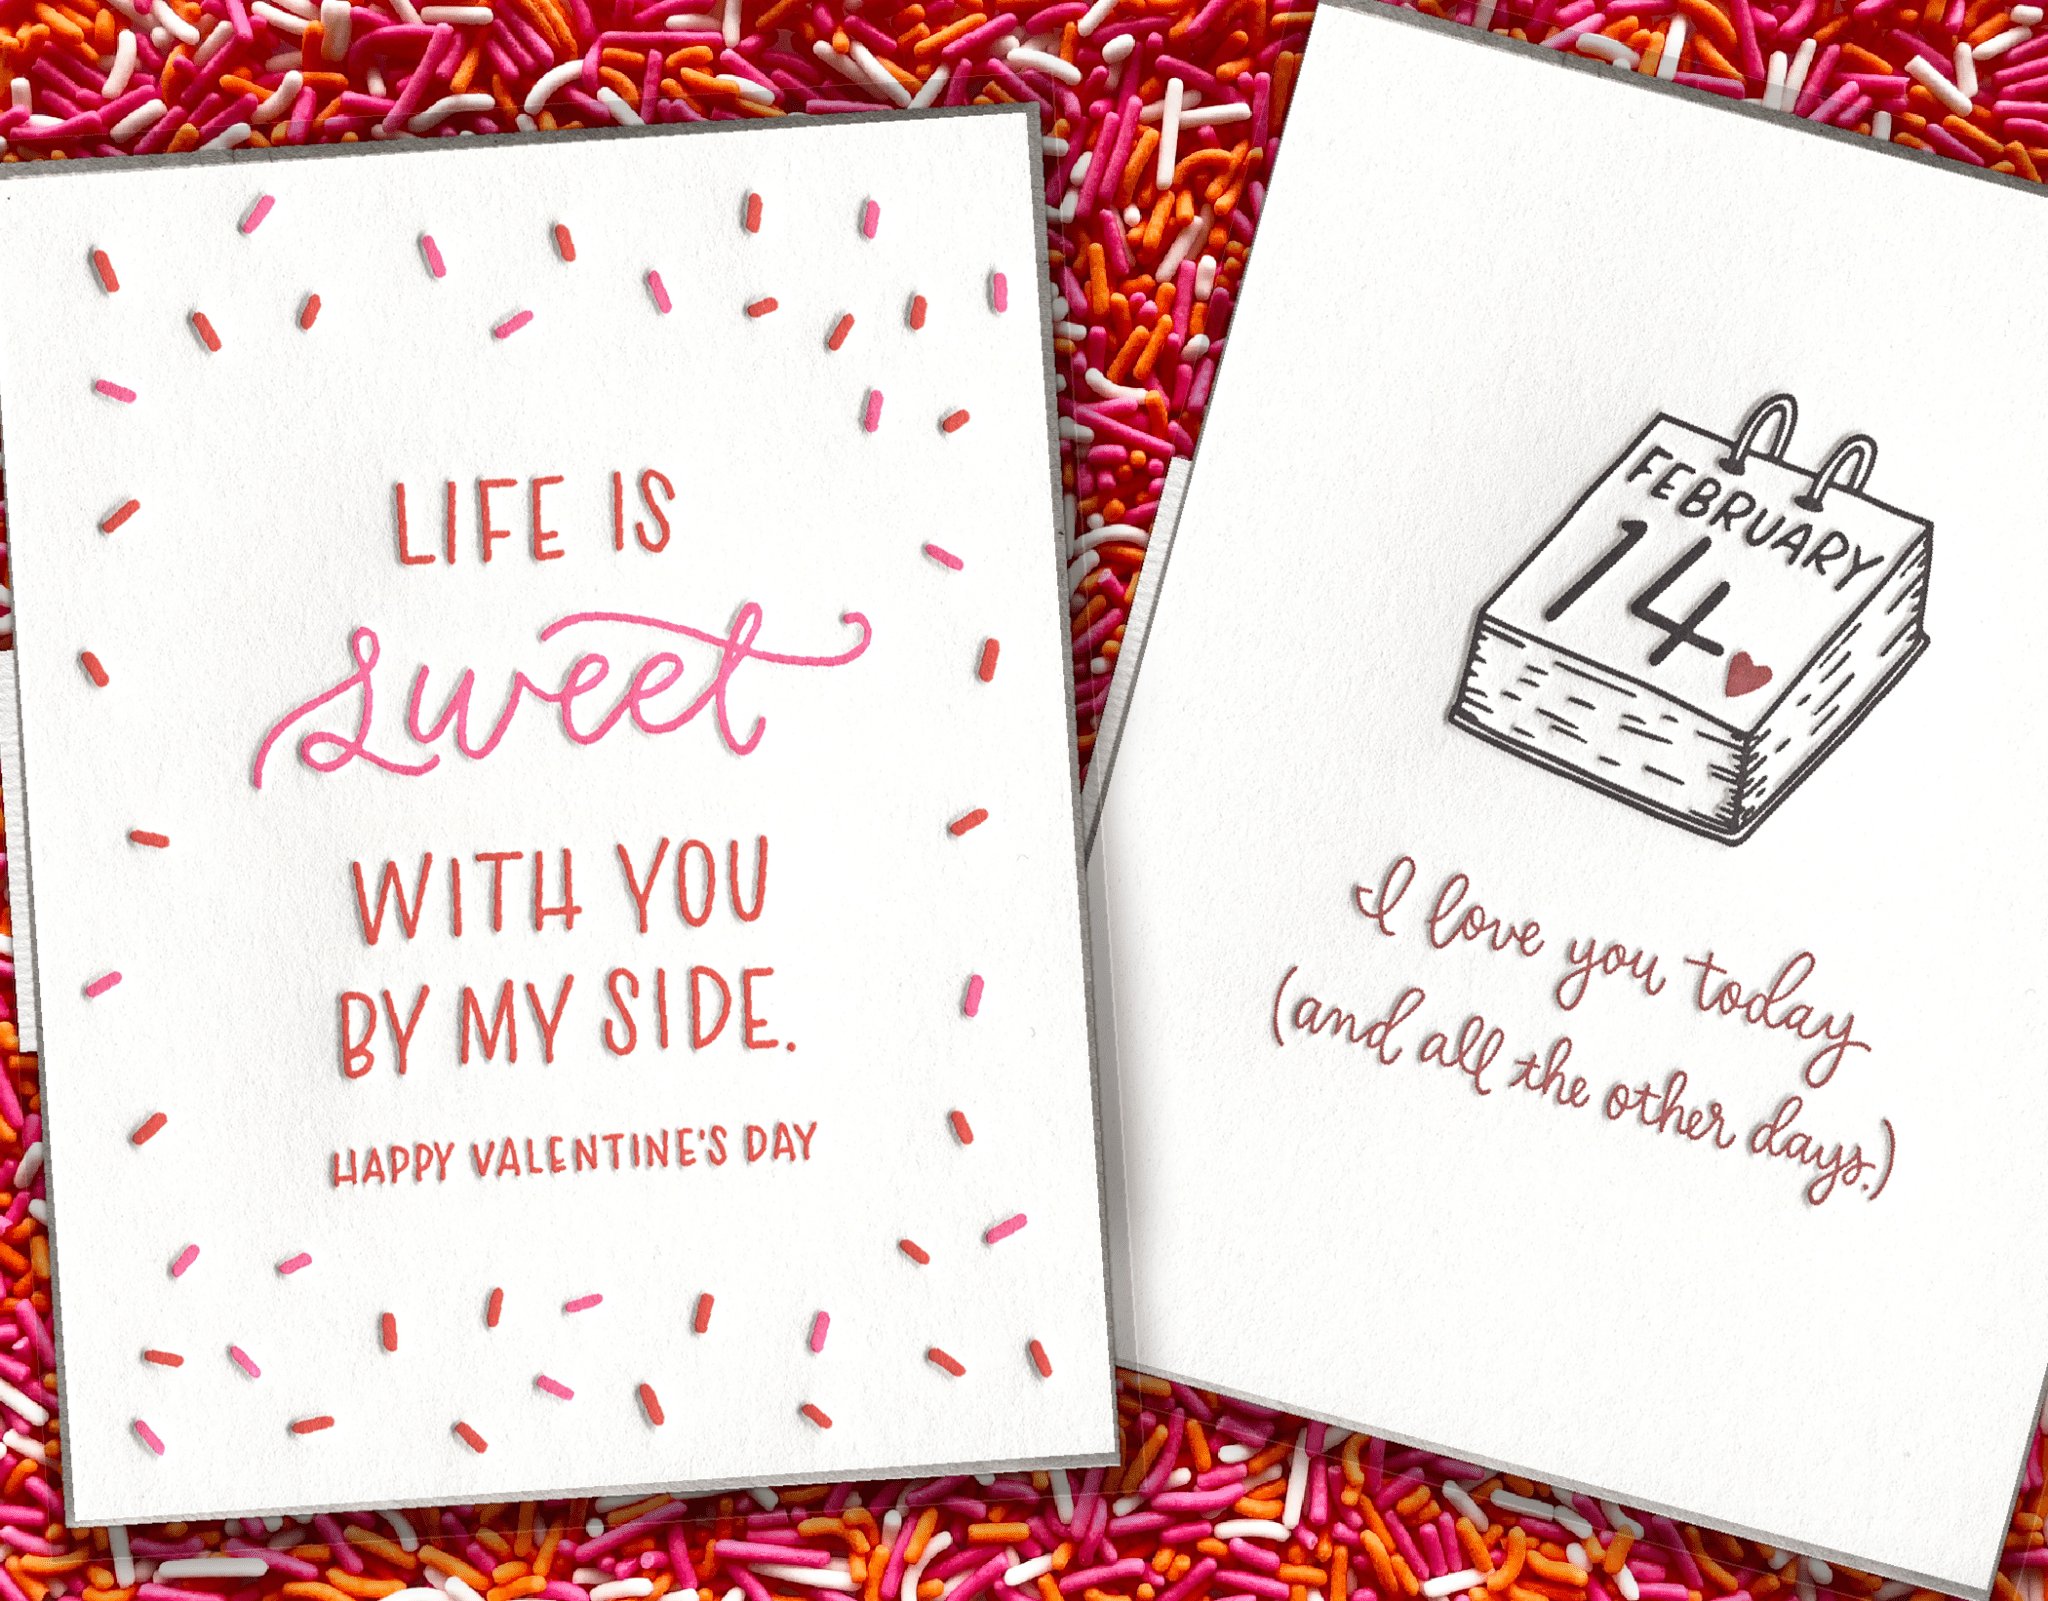 LIFE IS
sweet
WITH YOU
BY MY SIDE.
HAPPY VALENTINE'S DAY
FEBRUARY
14
I love you today
(and all the other days.)